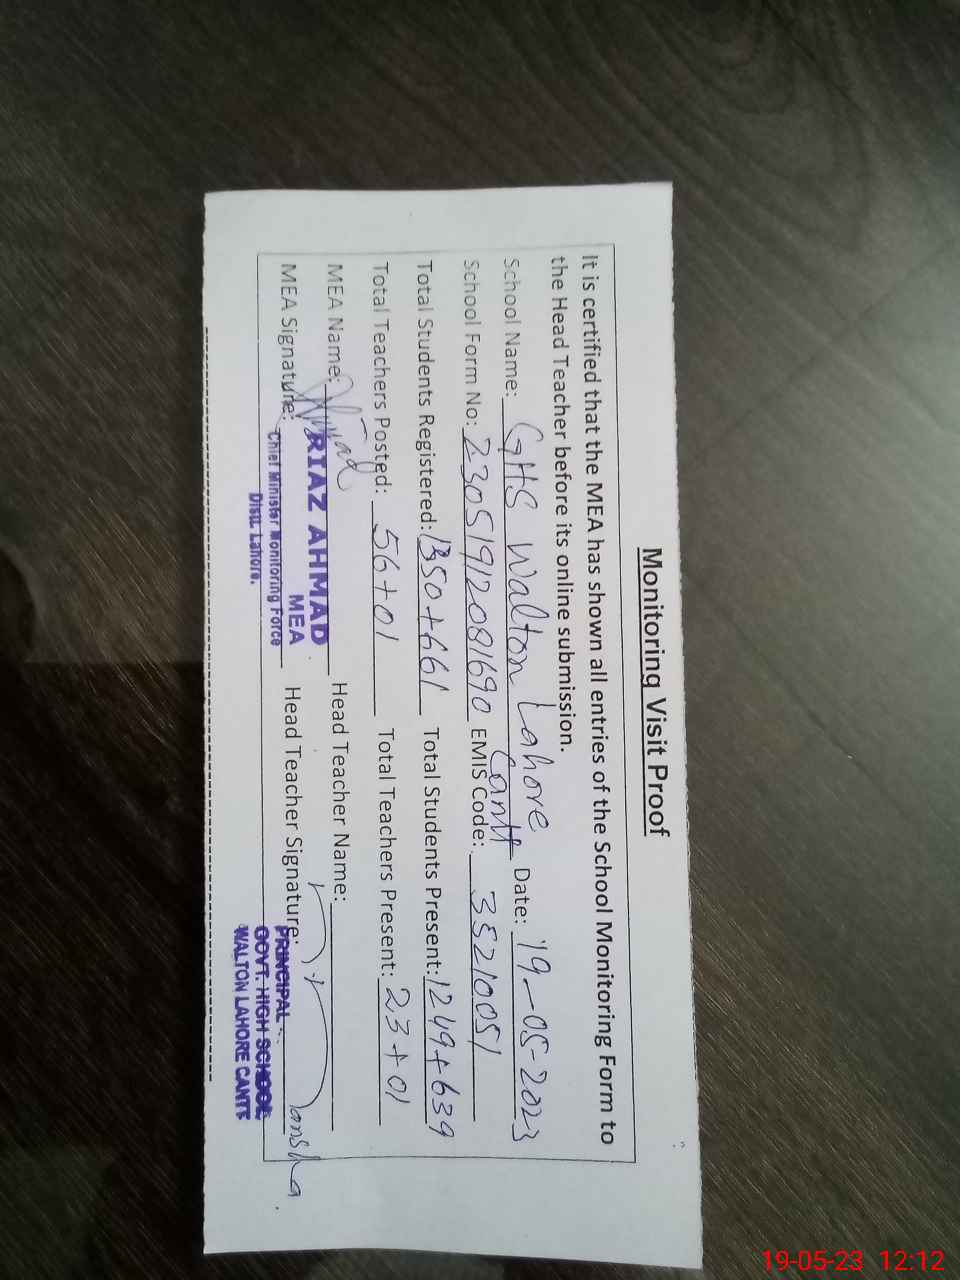 Monitoring Visit Proof
It is certified that the MEA has shown all entries of the School Monitoring Form to
the Head Teacher before its online submission.
School Name: GHS Walton Lahore Cantt Date: 19-05-2023
School Form No: 23051912081690 EMIS Code: 35210051
Total Students Registered: 1350+661 Total Students Present: 1249+639
Total Teachers Posted: 56+01 Total Teachers Present: 23+01
MEA Name: RIAZ AHMAD Head Teacher Name:
MEA
MEA Signature: Head Teacher Signature:
Chief Minister Monitoring Force
Distt. Lahore.
PRINCIPAL
GOVT. HIGH SCHOOL
WALTON LAHORE CANTT
19-05-23 12:12